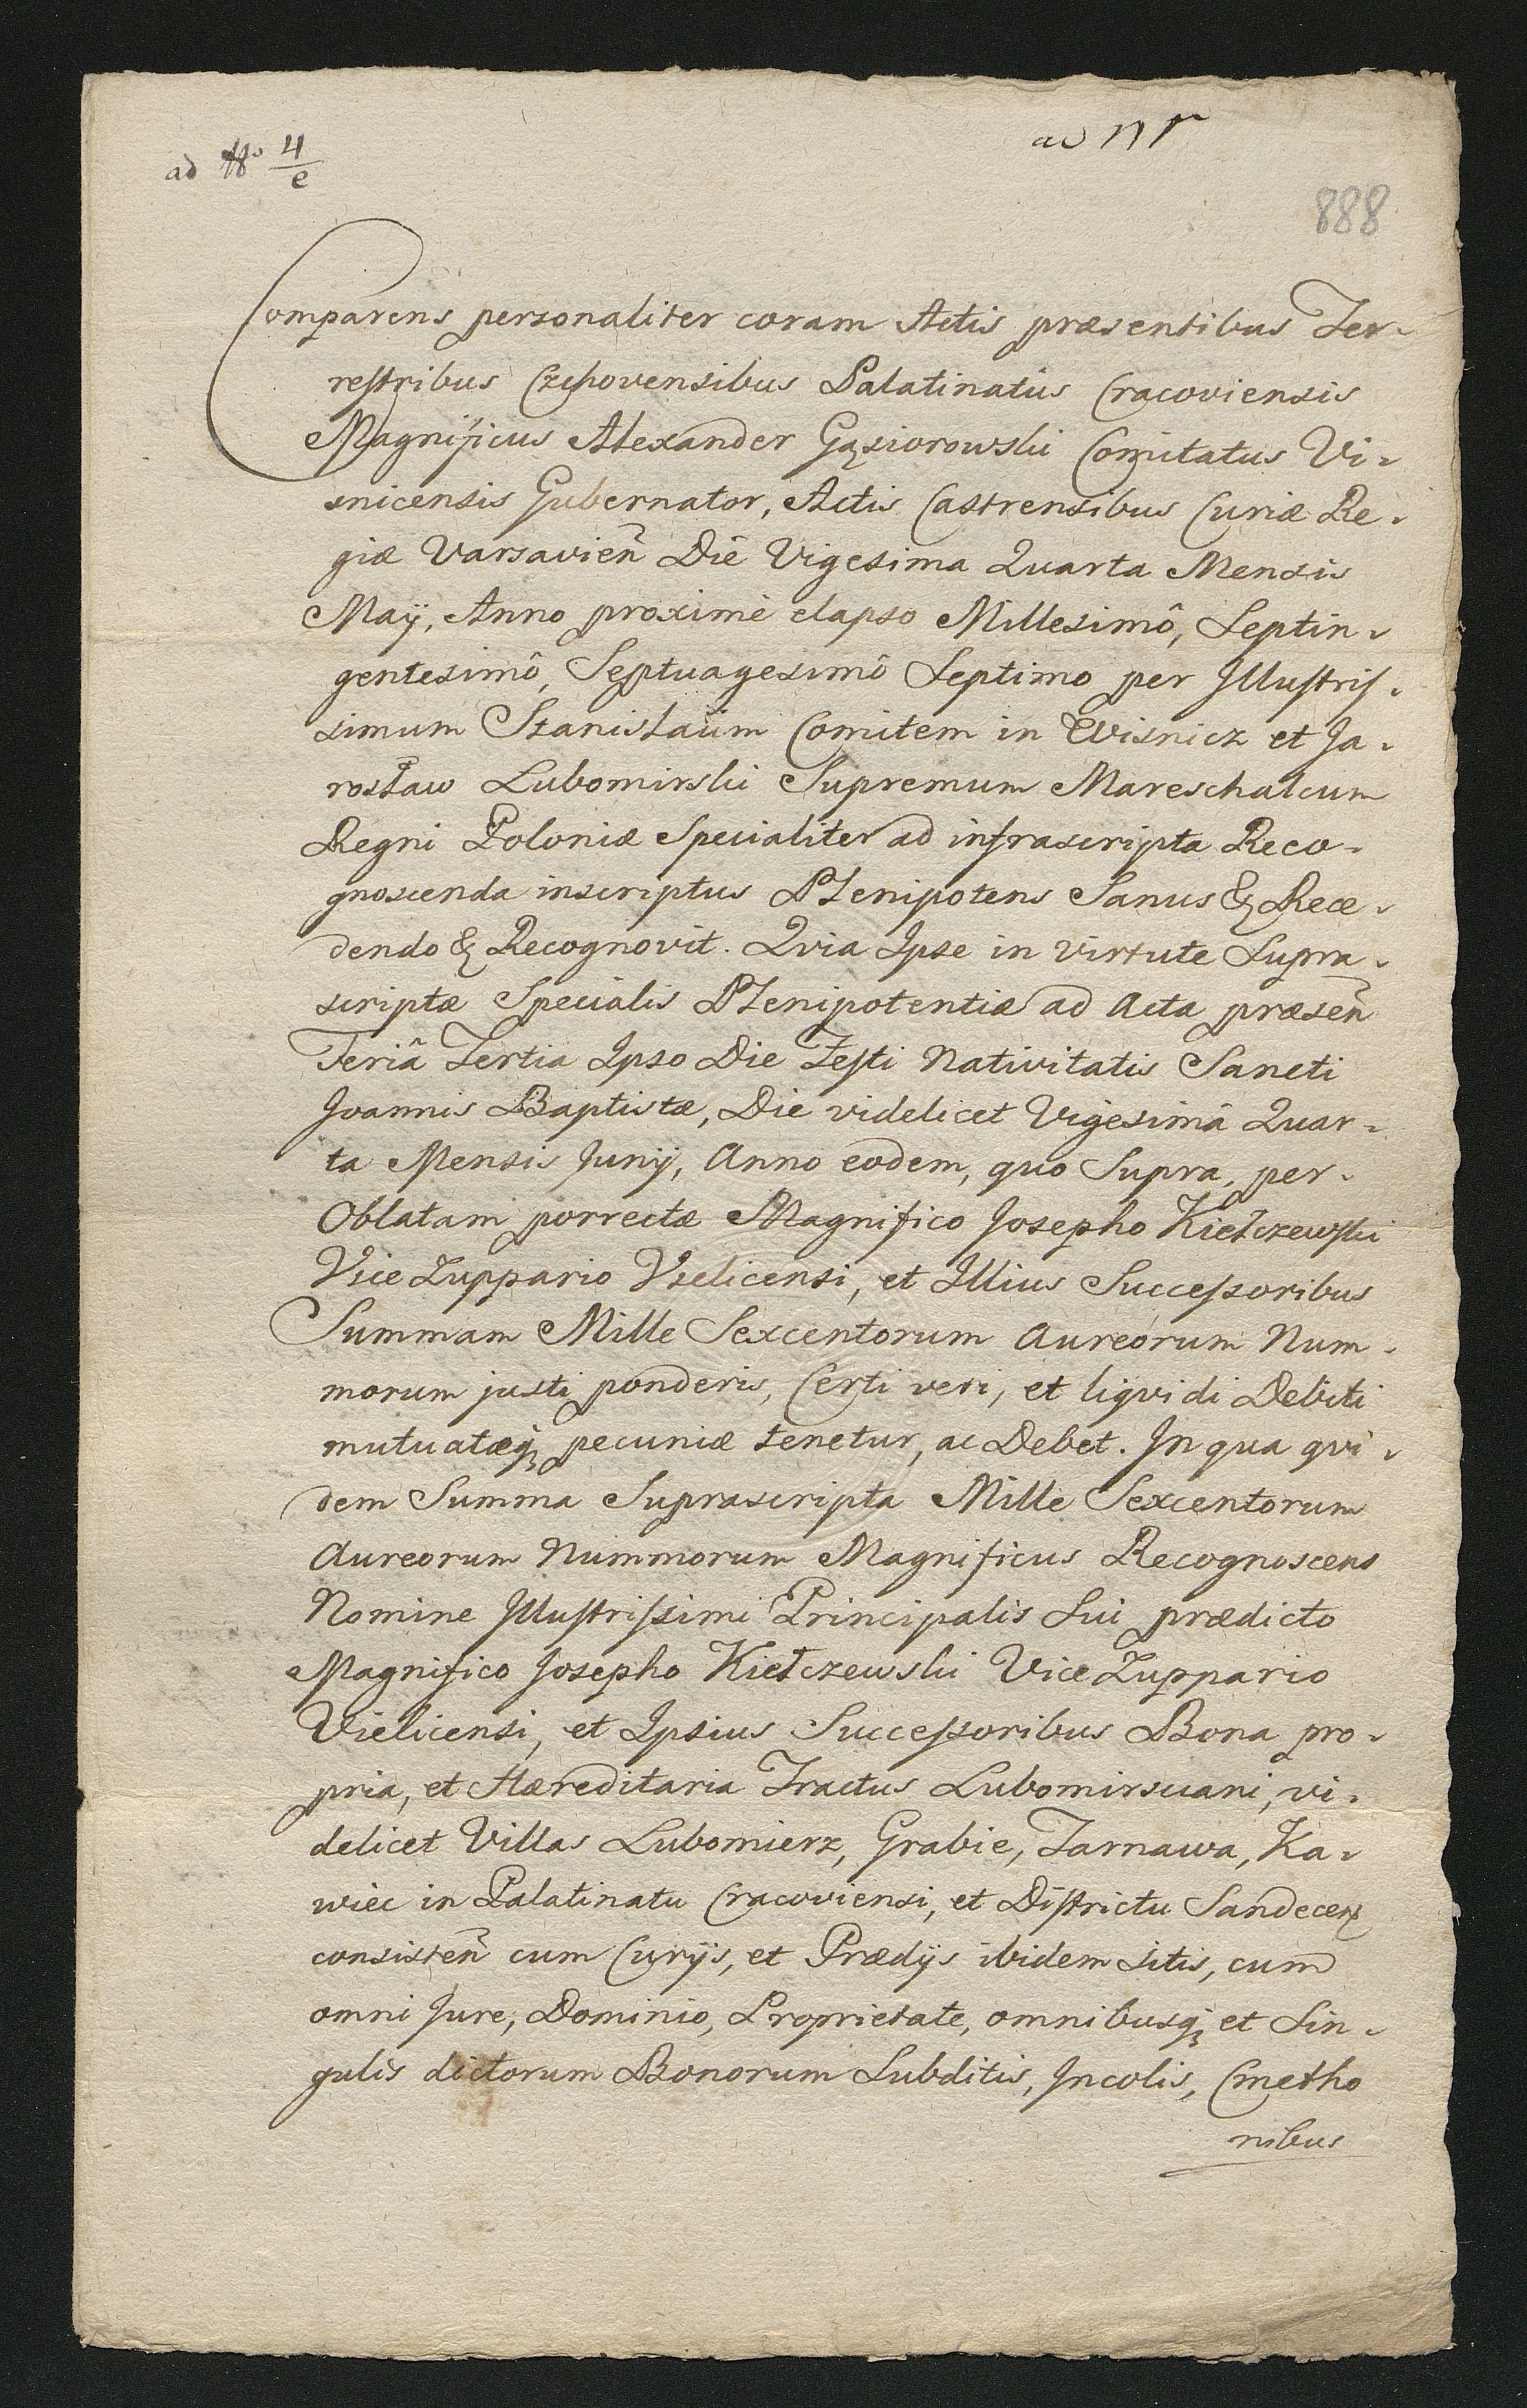 ad No 4/e
ad Nr
888
Comparens personaliter coram Actis præsentibus Ter-
restribus Czchovensibus Palatinatûs Cracoviensis
Magnificus Alexander Gąsiorowski Comitatus Vi-
snicensis Gubernator, Actis Castrensibus Curiæ Re-
giæ Varsavien̄ Die Vigesima Quarta Mensis
Maÿ, Anno proximè elapso Millesimô, Septin-
gentesimô, Septuagesimô Septimo per Illustris-
simum Stanislaum Comitem in Wisnicz et Ja-
rosław Lubomirski Supremum Mareschalcum
Regni Poloniæ Specialiter ad infrascripta Reco-
gnoscenda inscriptus Plenipotens Sanus & Rece-
dendo & Recognovit. Qvia Ipse in virtute Supra-
scriptæ Specialis Plenipotentiæ ad Acta præsen̄
Feriâ Tertia Ipso Die Festi Nativitatis Sancti
Joannis Baptistæ, Die videlicet Vigesimâ Quar-
ta Mensis Junÿ, Anno eodem, quo Supra, per-
Oblatam porrectæ Magnifico Josepho Kiełczewski
Vice Zuppario Vielicensi, et Illius Successoribus
Summam Mille Sexcentorum Aureorum Num-
morum justi ponderis, Certi veri, et liqvidi Debiti
mutuatæq̨ pecuniæ tenetur, ac Debet. In qua qvi-
dem Summa Suprascripta Mille Sexcentorum
Aureorum Nummorum Magnificus Recognoscens
Nomine Illustrissimi Principalis Sui prædicto
Magnifico Josepho Kiełczewski Vice Zuppario
Vielicensi, et Ipsius Successoribus Bona pro-
pria, et Hæreditaria Tractus Lubomirscani, vi-
delicet Villas Lubomierz, Grabie, Tarnawa, Ka-
wiec in Palatinatu Cracoviensi, et Districtu Sandecen
consisten̄ cum Curÿs, et Prædÿs ibidem Sitis, cum
omni Jure, Dominio, Proprietate, omnibusq̨ et Sin-
gulis dictorum Bonorum Subditis, Incolis, Cmetho
nibus